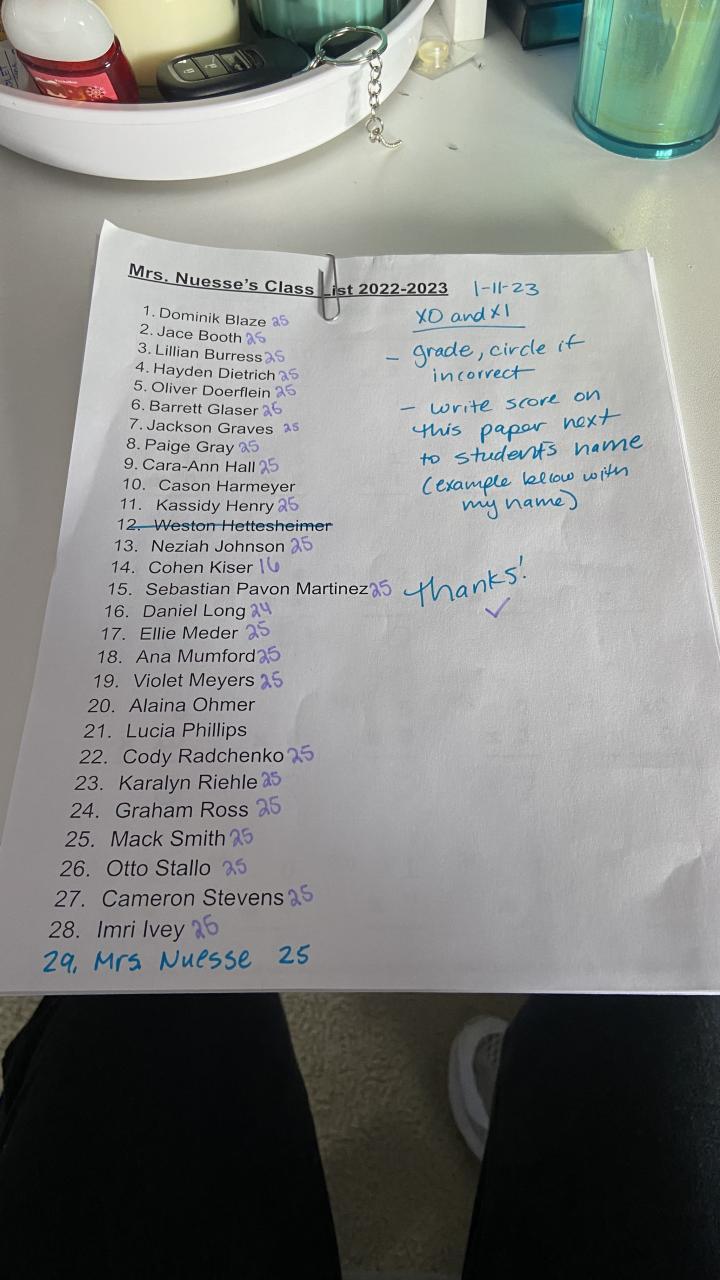 Mrs. Nuesse's Class List 2022-2023 1-11-23
X0 and X1
- grade, circle if
incorrect
- write score on
this paper next
to student's name
(example below with
my name)
thanks!
1. Dominik Blaze 25
2. Jace Booth 25
3. Lillian Burress 25
4. Hayden Dietrich 25
5. Oliver Doerflein 25
6. Barrett Glaser 25
7. Jackson Graves 25
8. Paige Gray 25
9. Cara-Ann Hall 25
10. Cason Harmeyer
11. Kassidy Henry 25
12. Weston Hettesheimer
13. Neziah Johnson 25
14. Cohen Kiser 16
15. Sebastian Pavon Martinez 25
16. Daniel Long 24
17. Ellie Meder 25
18. Ana Mumford 25
19. Violet Meyers 25
20. Alaina Ohmer
21. Lucia Phillips
22. Cody Radchenko 25
23. Karalyn Riehle 25
24. Graham Ross 25
25. Mack Smith 25
26. Otto Stallo 25
27. Cameron Stevens 25
28. Imri Ivey 25
29. Mrs. Nuesse 25